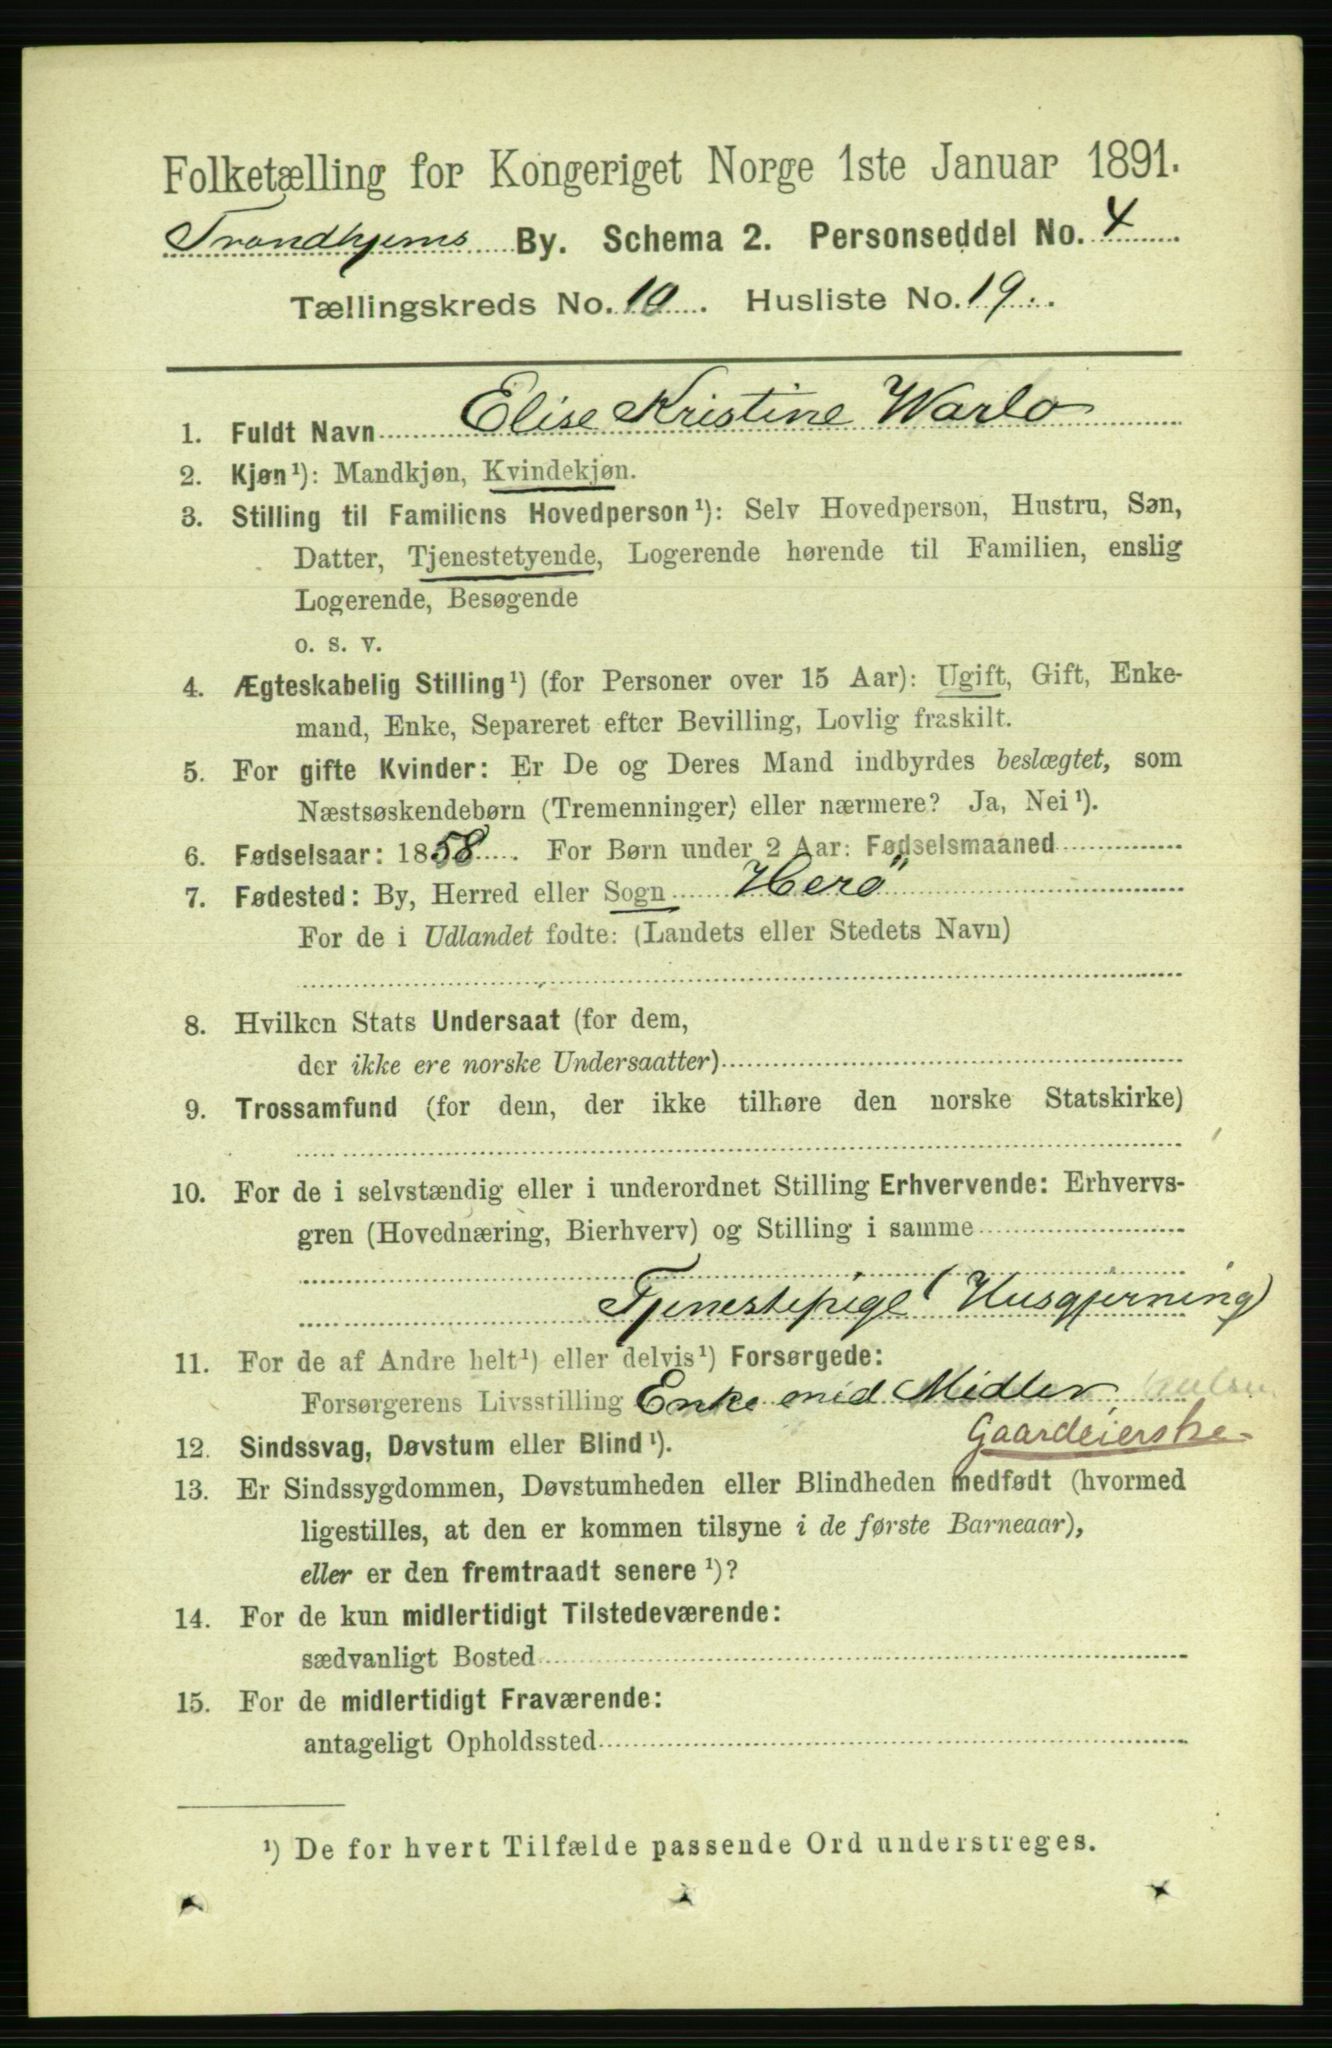 Folketælling for Kongeriget Norge 1ste Januar 1891.
Trondhjems By. Schema 2. Personseddel No. 4
Tællingskreds No. 10. Husliste No. 19.
1. Fuldt Navn Elise Kristine Warlo
2. Kjøn¹): Mandkjøn, Kvindekjøn.
3. Stilling til Familiens Hovedperson¹): Selv Hovedperson, Hustru, Søn,
Datter, Tjenestetyende, Logerende hørende til Familien, enslig
Logerende, Besøgende
o. s. v.
4. Ægteskabelig Stilling¹) (for Personer over 15 Aar): Ugift, Gift, Enke-
mand, Enke, Separeret efter Bevilling, Lovlig fraskilt.
5. For gifte Kvinder: Er De og Deres Mand indbyrdes beslægtet, som
Næstsøskendebørn (Tremenninger) eller nærmere? Ja, Nei¹).
6. Fødselsaar: 1858. For Børn under 2 Aar: Fødselsmaaned
7. Fødested: By, Herred eller Sogn Herö
For de i Udlandet fødte: (Landets eller Stedets Navn)
8. Hvilken Stats Undersaat (for dem,
der ikke ere norske Undersaatter)
9. Trossamfund (for dem, der ikke tilhøre den norske Statskirke)
10. For de i selvstændig eller i underordnet Stilling Erhvervende: Erhvervs-
gren (Hovednæring, Bierhverv) og Stilling i samme
Tjenestepige (Husgjerning)
11. For de af Andre helt¹) eller delvis¹) Forsørgede:
Forsørgerens Livsstilling Enke med Midler
Gaardeierske
12. Sindssvag, Døvstum eller Blind¹).
13. Er Sindssygdommen, Døvstumheden eller Blindheden medfødt (hvormed
ligestilles, at den er kommen tilsyne i de første Barneaar),
eller er den fremtraadt senere¹)?
14. For de kun midlertidigt Tilstedeværende:
sædvanligt Bosted
15. For de midlertidigt Fraværende:
antageligt Opholdssted
¹) De for hvert Tilfælde passende Ord understreges.